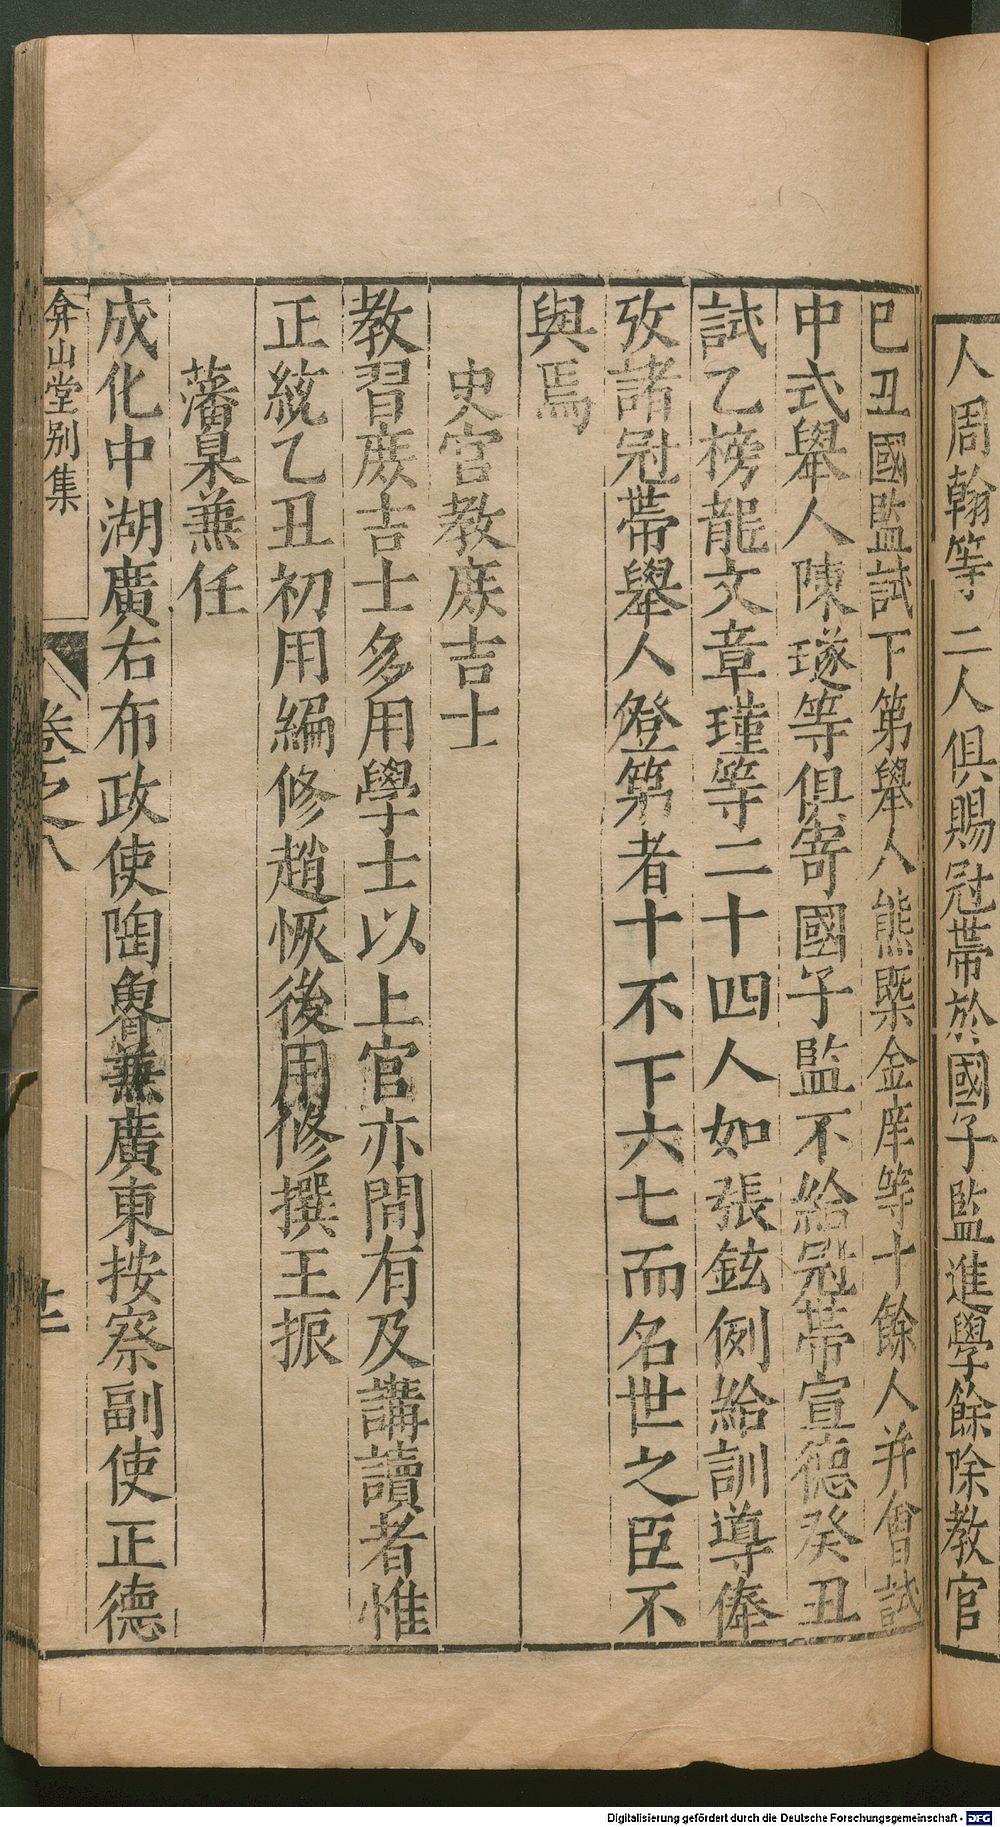 人周翰等二人俱賜冠帶於國子監進學餘除教官
巳丑國監試下第舉人熊槩金庠等十餘人并會試
中式舉人陳璲等俱寄國子監不給冠帶宣德癸丑
試乙榜龍文章瑾等二十四人如張鉉例給訓導俸
攷諸冠帶舉人登第者十不下六七而名世之臣不
與焉
史官教庶吉士
教習庶吉士多用學士以上官亦間有及講讀者惟
正統乙丑初用編修趙恢後用修撰王振
藩臬兼任
成化中湖廣右布政使陶魯兼廣東按察副使正德
弇山堂別集 卷之八
Digitalisierung gefördert durch die Deutsche Forschungsgemeinschaft - DFG